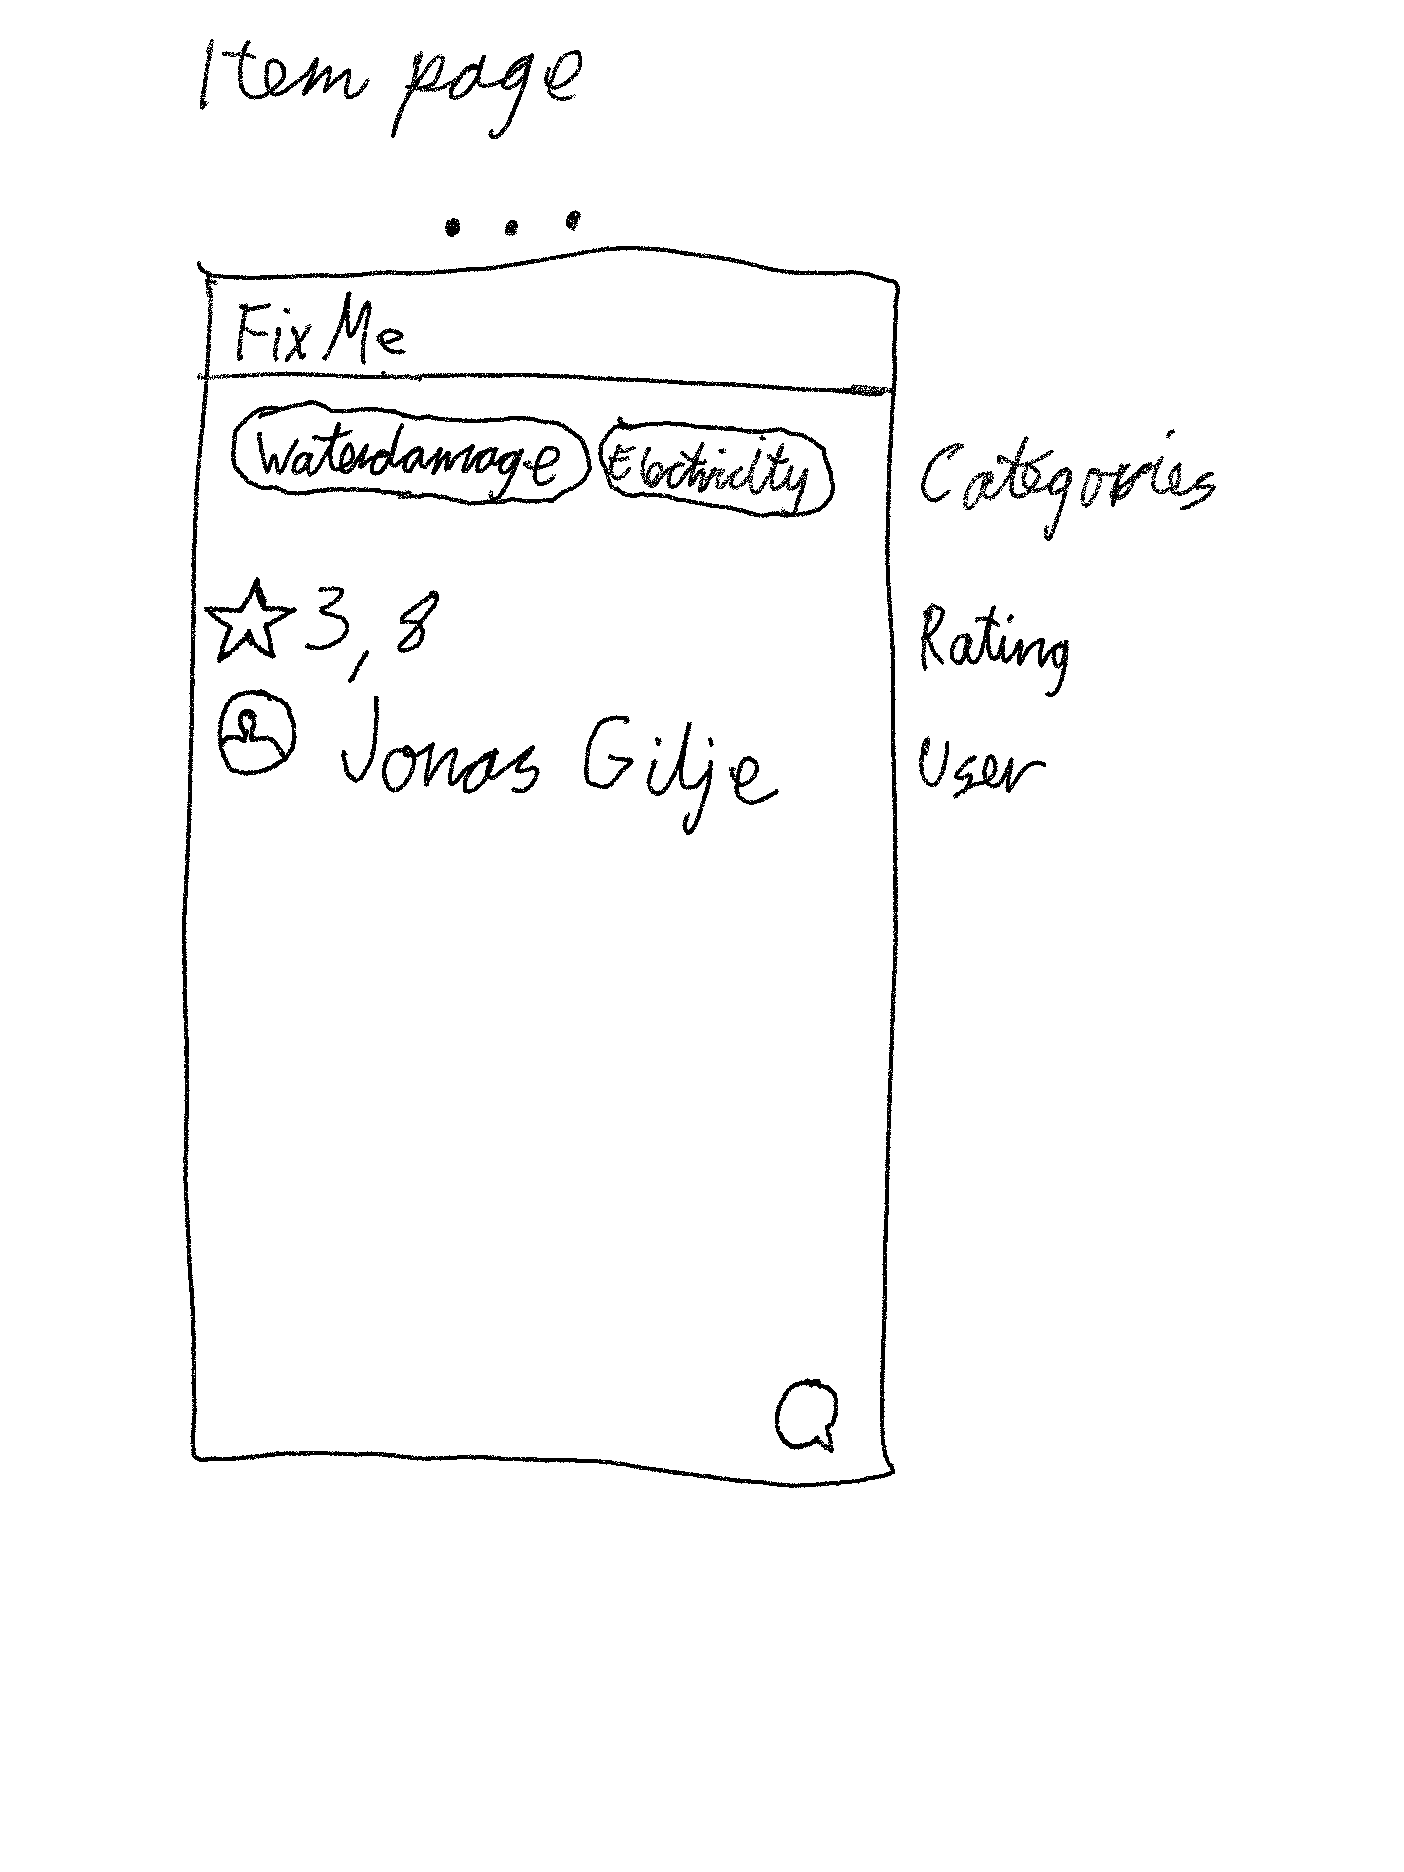 Item page
FixMe
Waterdamage Electricity Categories
3,8 Rating
Jonas Gilje User